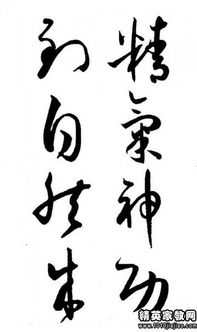 精氣神功
到自然成
精英家教网
www.1010jiajiao.com